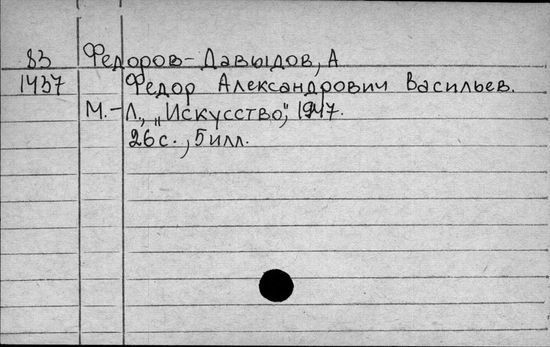 83 Федоров-Давыдов, А
1437 Федор Александрович Васильев.
М.-Л., „Искусство", 1947.
26 с., 5 илл.